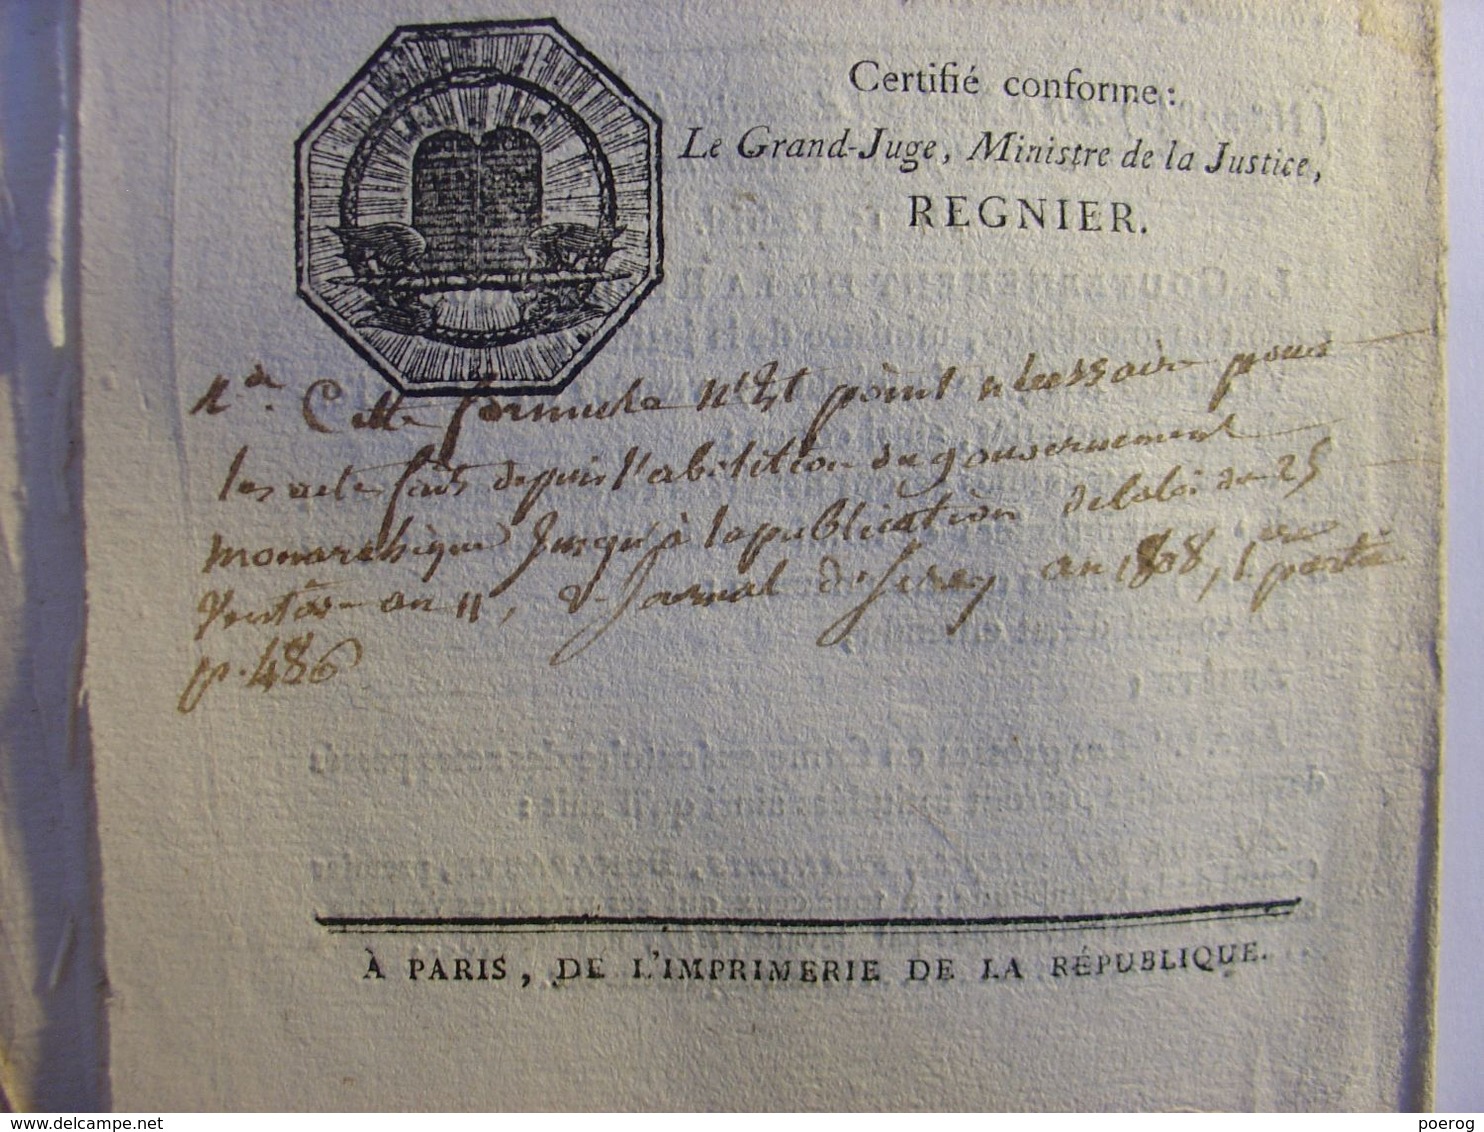 Certifié conforme:
Le Grand-Juge, Ministre de la Justice,
REGNIER.
Cette formule n'est point nécessaire pour
les acte faits depuis l'abolition du gouvernement
monarchique jusqu'à la publication de la loi du 25
Ventôse an 11, v. Journal de Sirey an 1808, 1.ere partie
p. 486
À PARIS, DE L'IMPRIMERIE DE LA RÉPUBLIQUE.
poerog